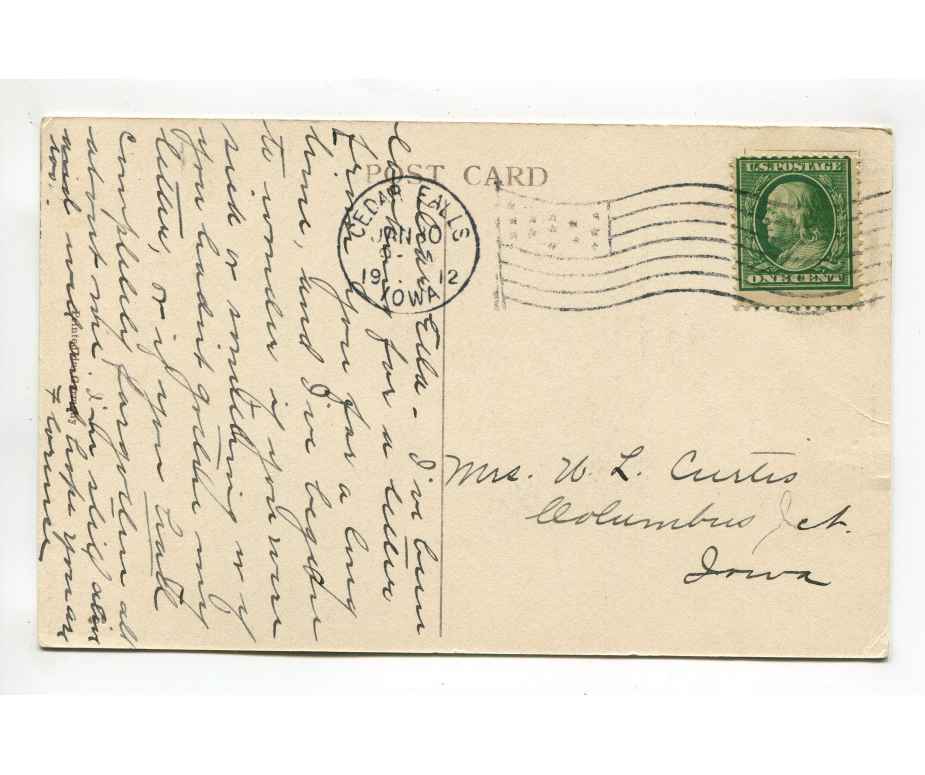 POST CARD
CEDAR FALLS
JAN 30
1912
IOWA
U.S. POSTAGE
ONE CENT
Dear Ella - I've been
looking for a letter
from you for a long
time, and I've begun
to wonder if you were
sick or something or if
you hadn't gotten my
letter, or if you had
completely forgotten all
about me. I'm still alive
and well and hope you are
too.
Mrs. W. L. Curtis
Columbus Jct.
Iowa